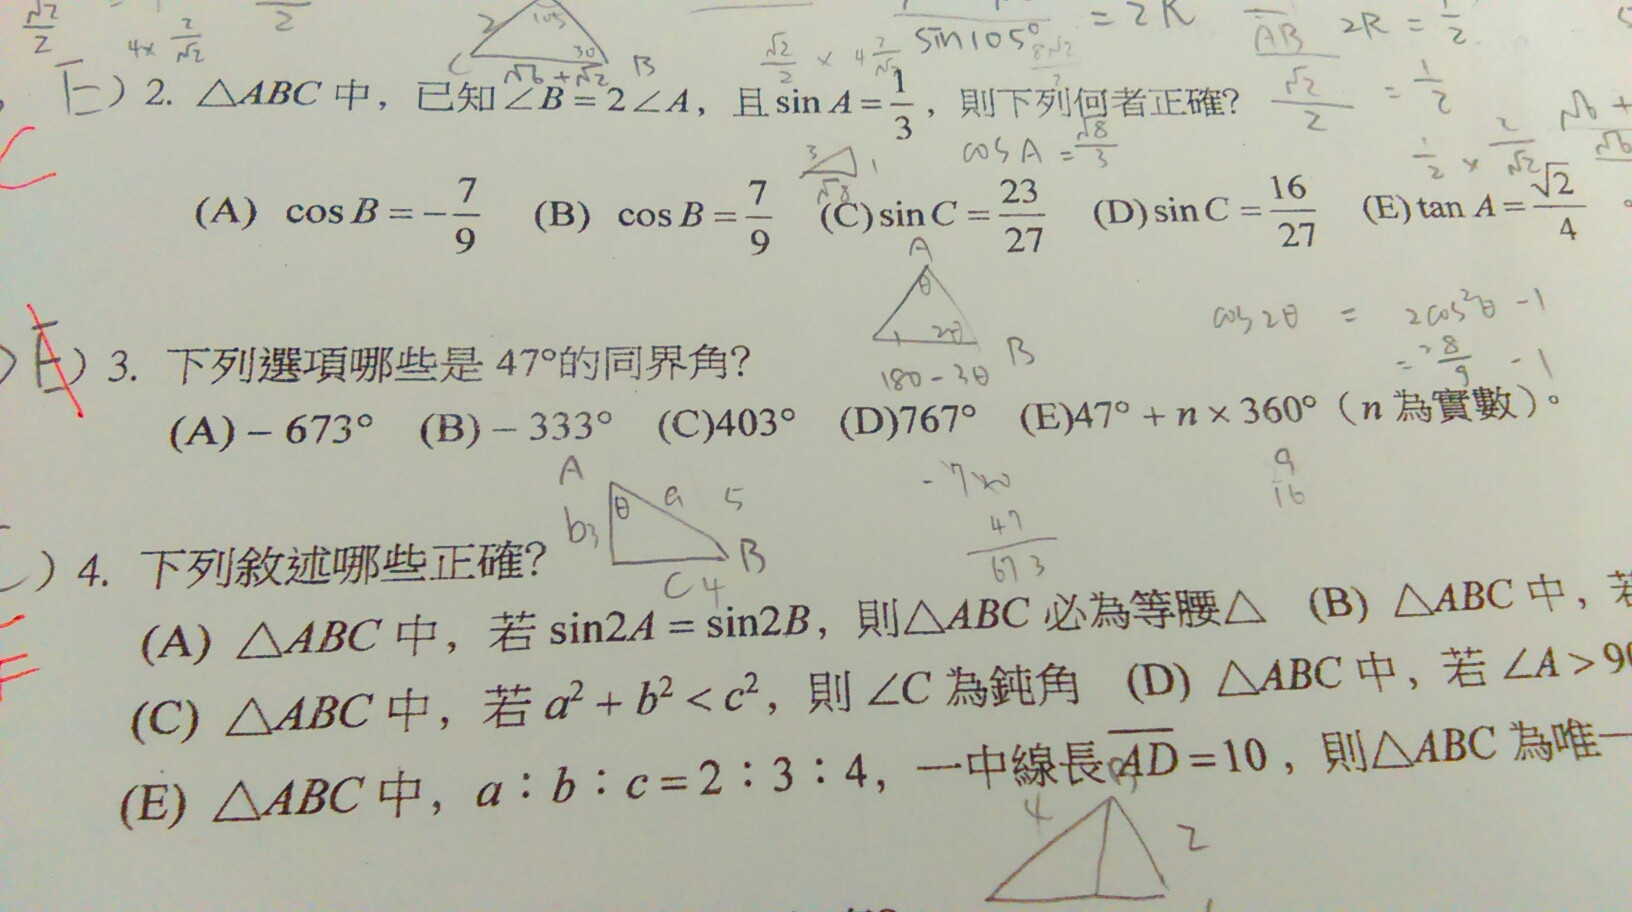 √2/2
4× 2/√2
2
2 105 30
C √6+√2 B
√2/2 × 4 2/√2
sin105° = 2R
AB 2R = 1/2
√2/2 = 1/2
1/2 × 2/√2
E) 2. △ABC 中，已知∠B = 2∠A，且 sin A = 1/3，則下列何者正確？
C
3 1 √8
cos A = √8/3
(A) cos B = −7/9 (B) cos B = 7/9 (C) sin C = 23/27 (D) sin C = 16/27 (E) tan A = √2/4 。
A
θ
2θ B
180 − 3θ
cos 2θ = 2cos²θ − 1
= 2 8/9 − 1
E) 3. 下列選項哪些是 47°的同界角？
(A) − 673° (B) − 333° (C)403° (D)767° (E)47° + n × 360°（n 為實數）。
A
θ a 5
b3 B
C4
-720
47
673
9
16
) 4. 下列敘述哪些正確？
(A) △ABC 中，若 sin2A = sin2B，則△ABC 必為等腰△ (B) △ABC 中，若
(C) △ABC 中，若 a² + b² < c²，則 ∠C 為鈍角 (D) △ABC 中，若 ∠A > 90
(E) △ABC 中，a：b：c = 2：3：4，一中線長 AD = 10，則△ABC 為唯一
4 2